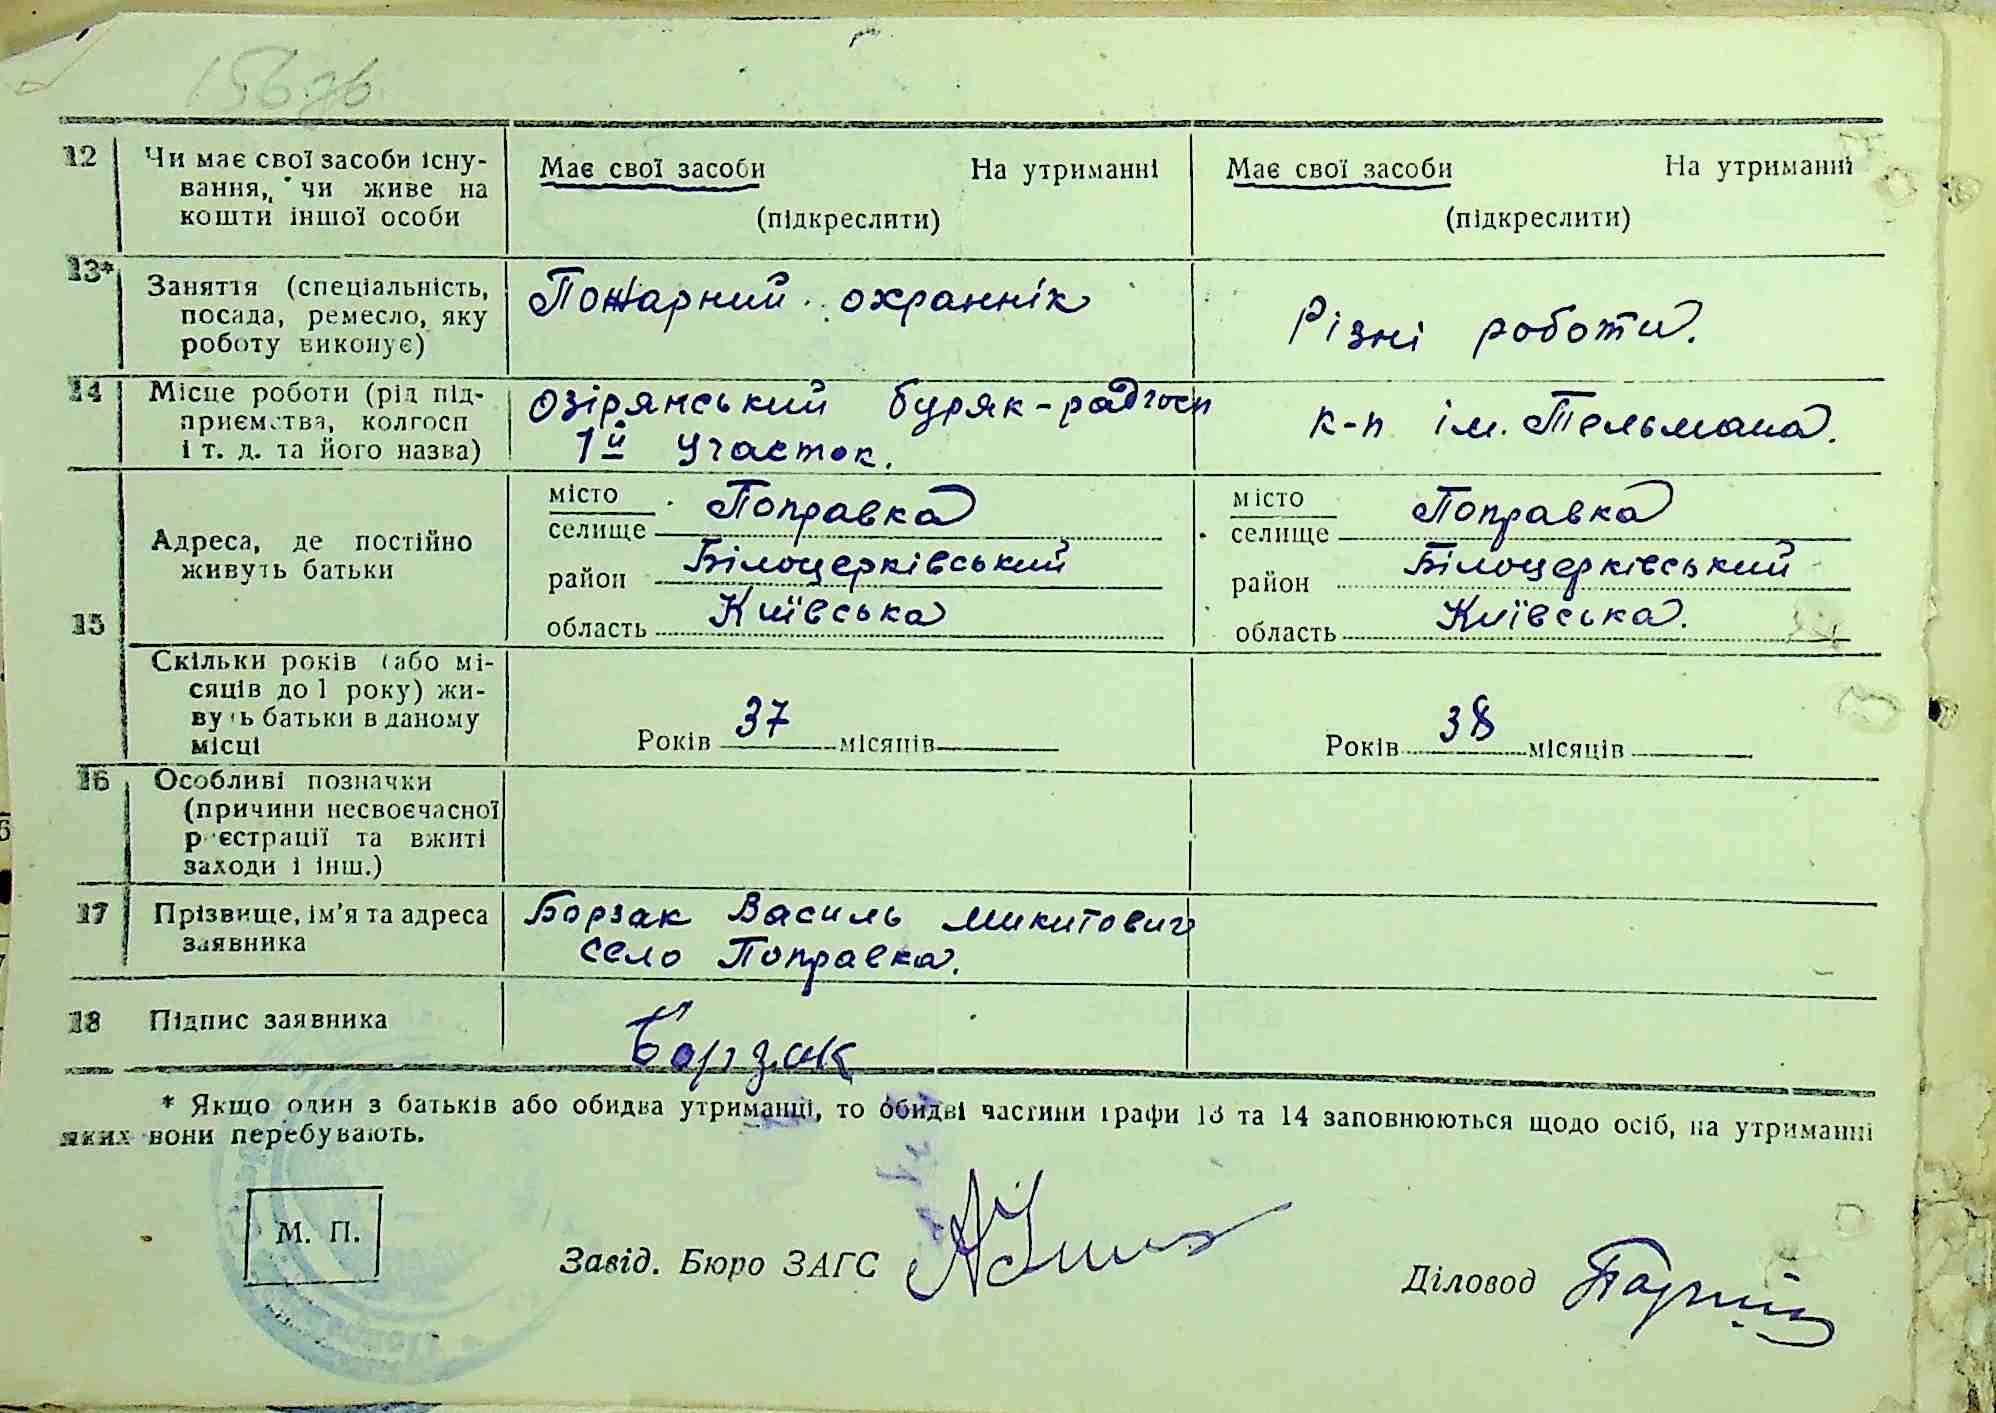 156 зв.
12 Чи має свої засоби існу-
вання, чи живе на
кошти іншої особи
Має свої засоби На утриманні
(підкреслити)
Має свої засоби На утриманні
(підкреслити)
13* Заняття (спеціальність,
посада, ремесло, яку
роботу виконує)
Пожарний охраннік
Різні роботи.
14 Місце роботи (рід під-
приємства, колгосп
і т. д. та його назва)
Озірянський буряк-радгосп
1й участок.
к-п ім. Тельмана.
15
Адреса, де постійно
живуть батьки
місто
селище Поправка
район Білоцерківський
область Київська
місто
селище Поправка
район Білоцерківський
область Київська.
Скільки років (або мі-
сяців до 1 року) жи-
вуть батьки в даному
місці
Років 37 місяців
Років 38 місяців
16 Особливі позначки
(причини несвоєчасної
реєстрації та вжиті
заходи і інш.)
17 Прізвище, ім'я та адреса
заявника
Борзак Василь Микитович
село Поправка.
18 Підпис заявника
Борзак
* Якщо один з батьків або обидва утриманці, то обидві частини графи 13 та 14 заповнюються щодо осіб, на утриманні
яких вони перебувають.
М. П.
Завід. Бюро ЗАГС
Діловод